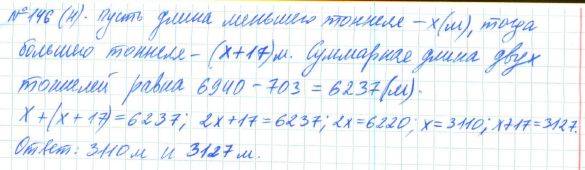 №146 (н). Пусть длина меньшего тоннеля – х(м), тогда
большего тоннеля – (х+17)м. Суммарная длина двух
тоннелей равна 6940 – 703 = 6237(м).
х+(х+17)=6237; 2х+17=6237; 2х=6220; х=3110; х+17=3127.
Ответ: 3110м и 3127м.